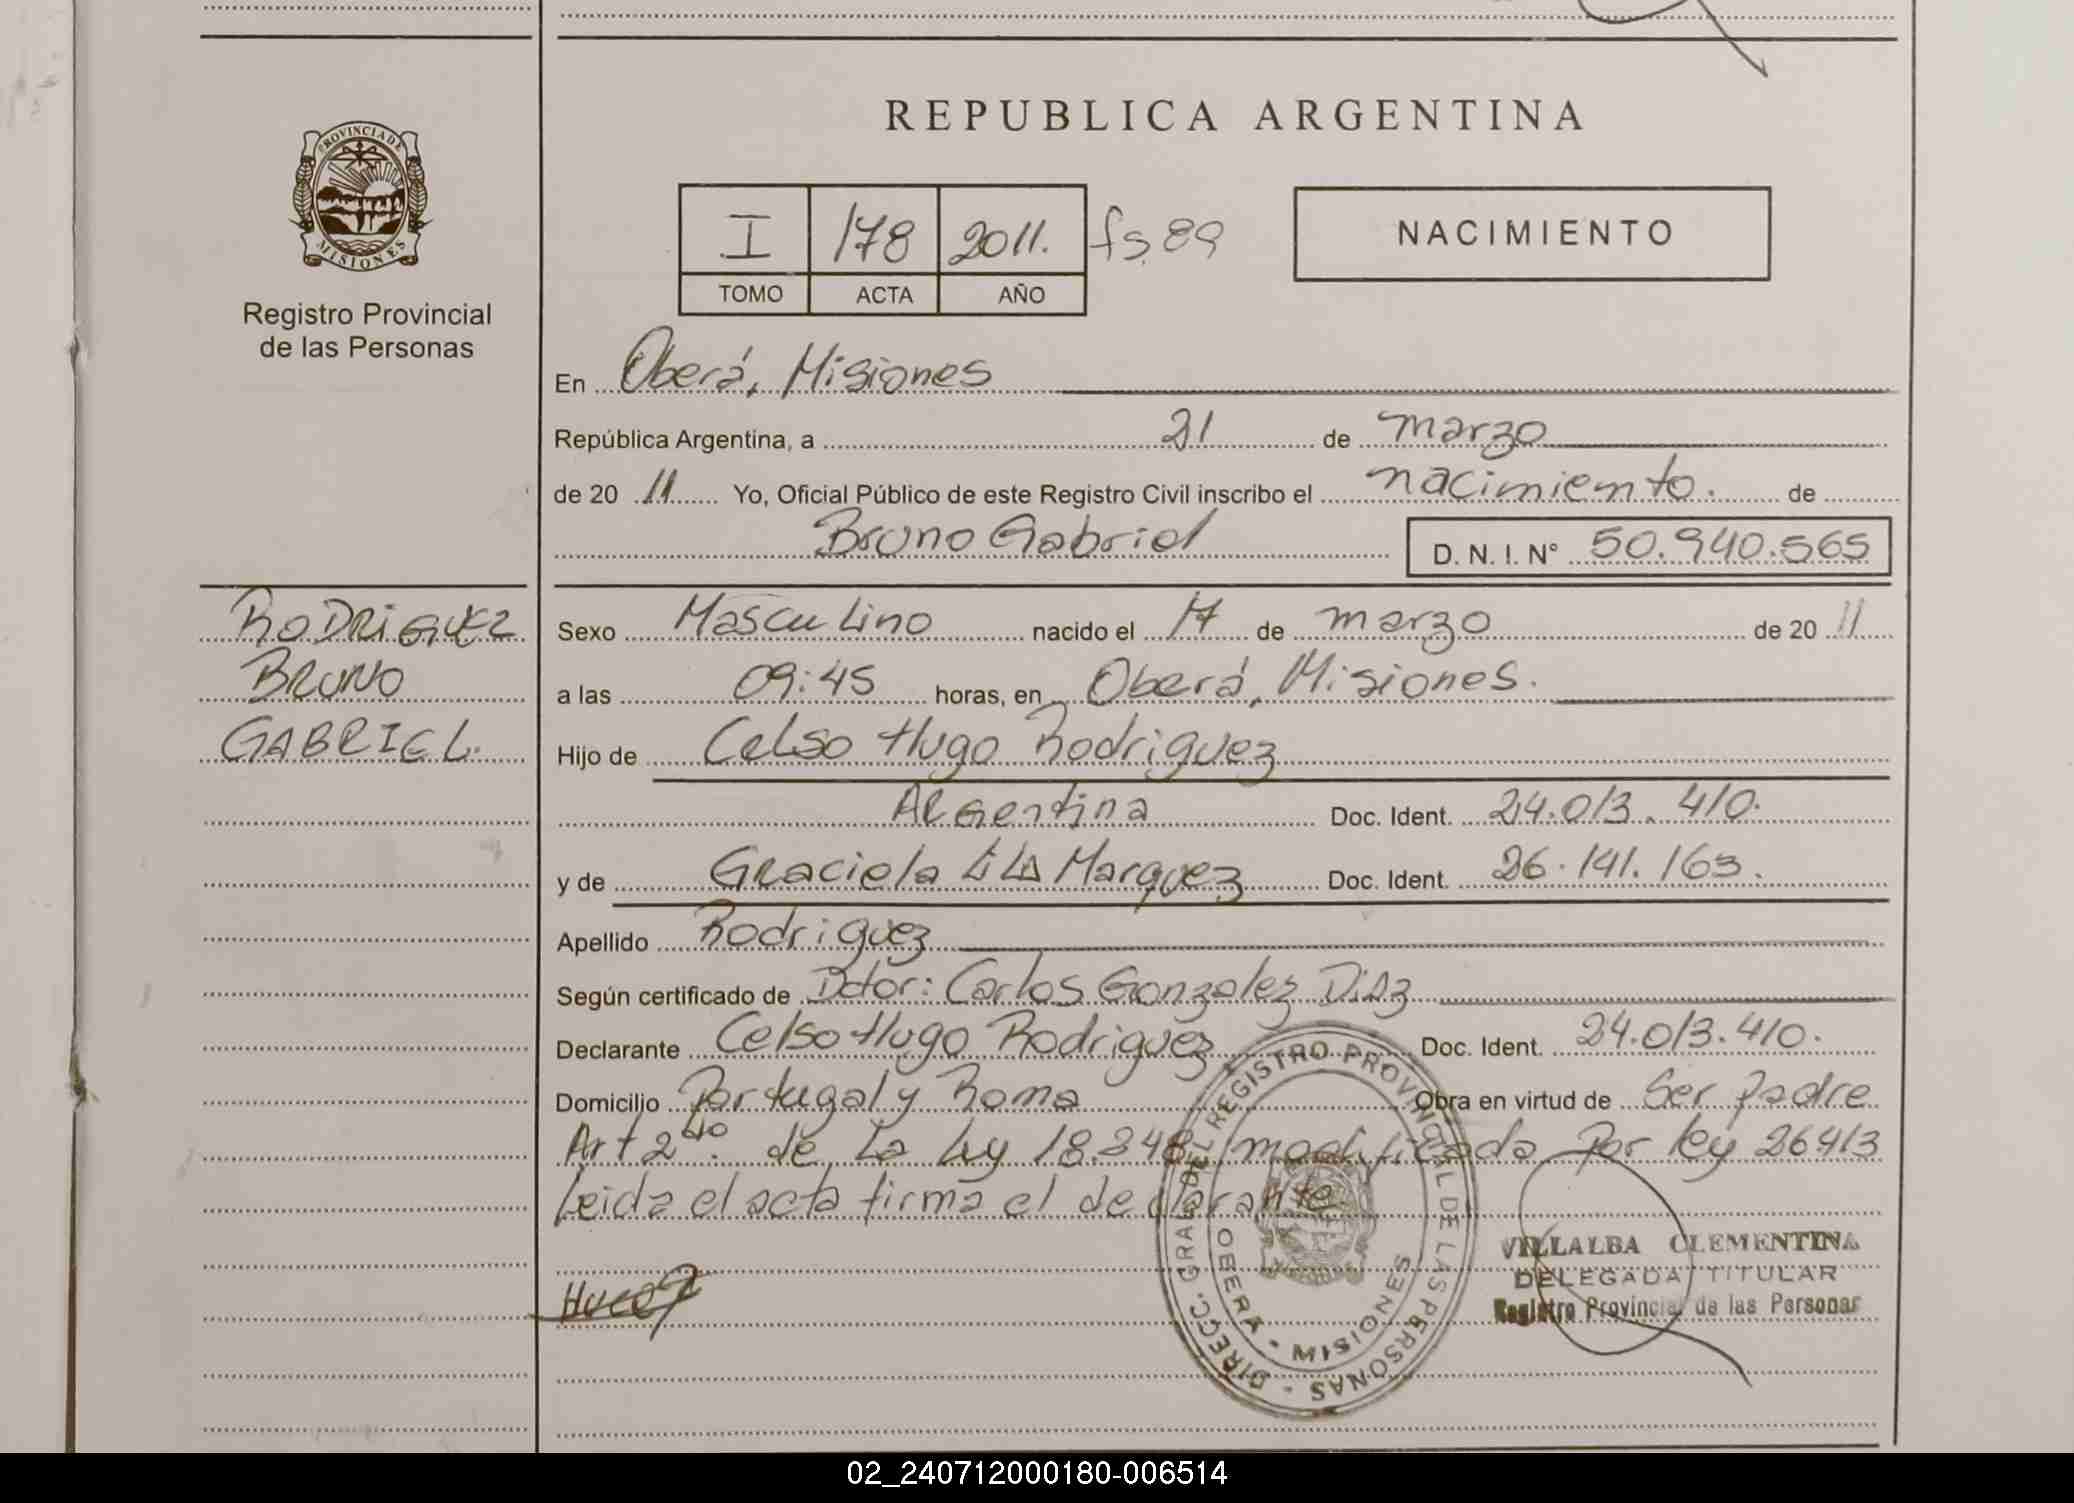 REPUBLICA ARGENTINA
PROVINCIA DE
MISIONES
Registro Provincial
de las Personas
I 178 2011. fs. 89
TOMO ACTA AÑO
NACIMIENTO
En Oberá, Misiones
República Argentina, a 21 de marzo
de 20 11 Yo, Oficial Público de este Registro Civil inscribo el nacimiento. de
Bruno Gabriel D. N. I. N° 50.940.565
RODRIGUEZ
BRUNO
GABRIEL.
Sexo Masculino nacido el 17 de marzo de 20 11
a las 09:45 horas, en Oberá, Misiones.
Hijo de Celso Hugo Rodriguez
Argentina Doc. Ident. 24.013.410.
y de Graciela Marquez Doc. Ident. 26.141.163.
Apellido Rodriguez
Según certificado de Dctor: Carlos Gonzalez Diaz
Declarante Celso Hugo Rodriguez Doc. Ident. 24.013.410.
Domicilio Portugal y Roma Obra en virtud de Ser Padre
Art 2do. de La Ley 18.248 modificada Por ley 26413
Leida el acta firma el declarante.
DIRECC. GRAL. DEL REGISTRO PROVINCIAL DE LAS PERSONAS -
OBERA - MISIONES
VILLALBA CLEMENTINA
DELEGADA TITULAR
Registro Provincial de las Personas
02_240712000180-006514